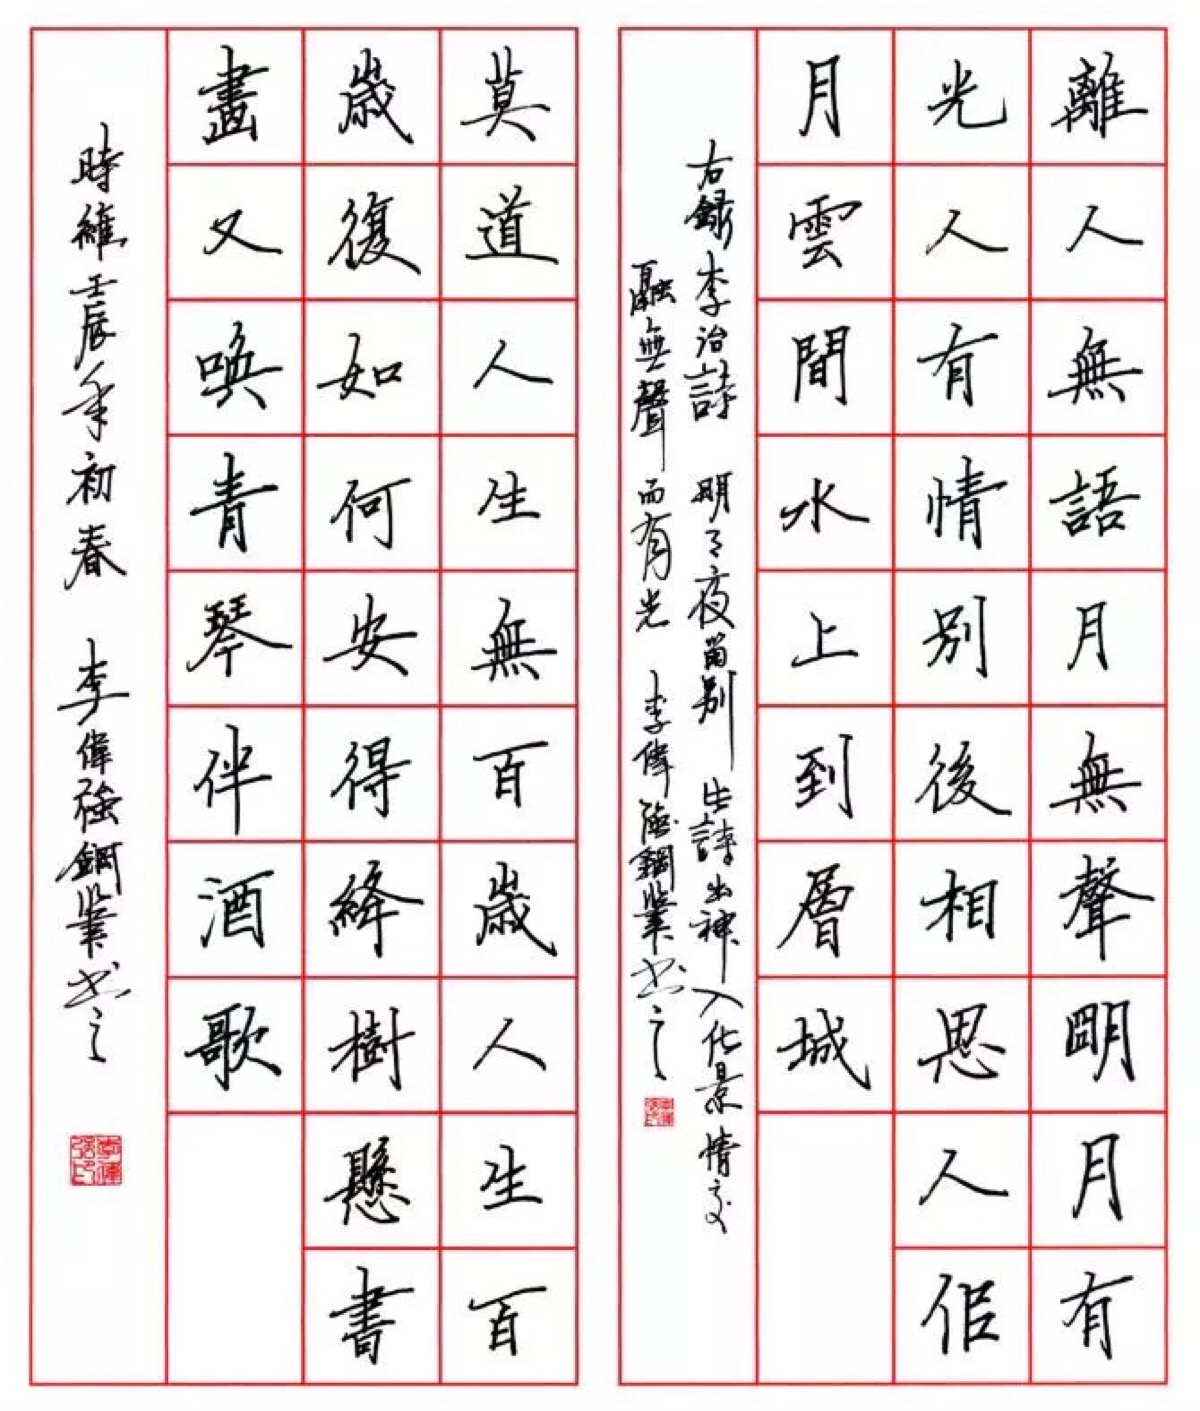 離人無語月無聲明月有
光人有情別後相思人佀
月雲間水上到層城
右錄李治詩 明月夜留別 此詩出神入化景情交
融無聲而有光 李偉強鋼筆書之
李偉強印
莫道人生無百歲人生百
歲復如何安得絳樹懸書
畫又喚青琴伴酒歌
時維壬辰年初春 李偉強鋼筆書之
李偉強印